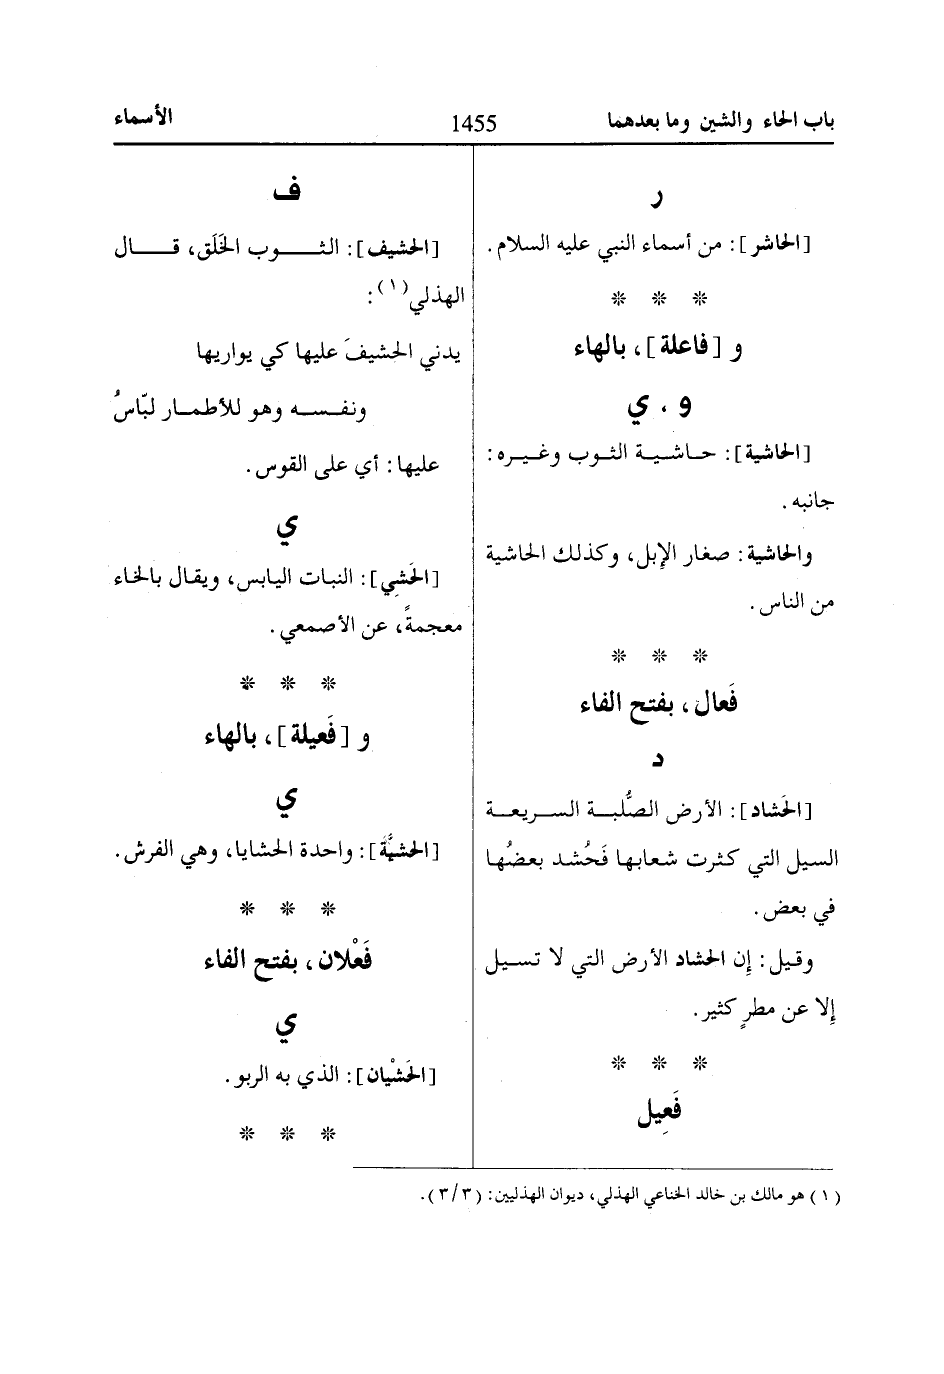 باب الحاء والشين وما بعدهما
1455
الأسماء
ر
[الحاشر]: من أسماء النبي عليه السلام.
* * *
و [فاعلة]، بالهاء
و، ي
[الحاشية]: حاشية الثوب وغيره:
جانبه.
والحاشية: صغار الإبل، وكذلك الحاشية
من الناس.
* * *
فَعال، بفتح الفاء
د
[الحَشاد]: الأرض الصُّلبة السريعة
السيل التي كثرت شعابها فَحُشد بعضُها
في بعض.
وقيل: إن الحشاد الأرض التي لا تسيل
إلا عن مطرٍ كثير.
* * *
فَعِيل
ف
[الحشيف]: الثوب الخَلَق، قال
الهذلي(١):
يدني الحشيفَ عليها كي يواريها
ونفسه وهو للأطمار لبّاسُ
عليها: أي على القوس.
ي
[الحَشِي]: النبات اليابس، ويقال بالخاء
معجمةً، عن الأصمعي.
* * *
و [فَعيلة]، بالهاء
ي
[الحشيَّة]: واحدة الحشايا، وهي الفرش.
* * *
فَعْلان، بفتح الفاء
ي
[الحَشْيان]: الذي به الربو.
* * *
(١) هو مالك بن خالد الخناعي الهذلي، ديوان الهذليين: (٣/٣).